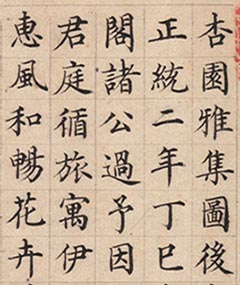 杏園雅集圖後
正統二年丁巳
閣諸公過予因
君庭循旅寓伊
惠風和暢花卉